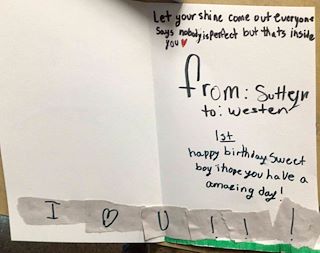 Let your shine come out everyone
Says nobody is perfect but thats inside
you ♥
from: Suttyn
to: westen
1st
happy birthday sweet
boy i hope you have a
amazing day!
I ♡ U ! ! !